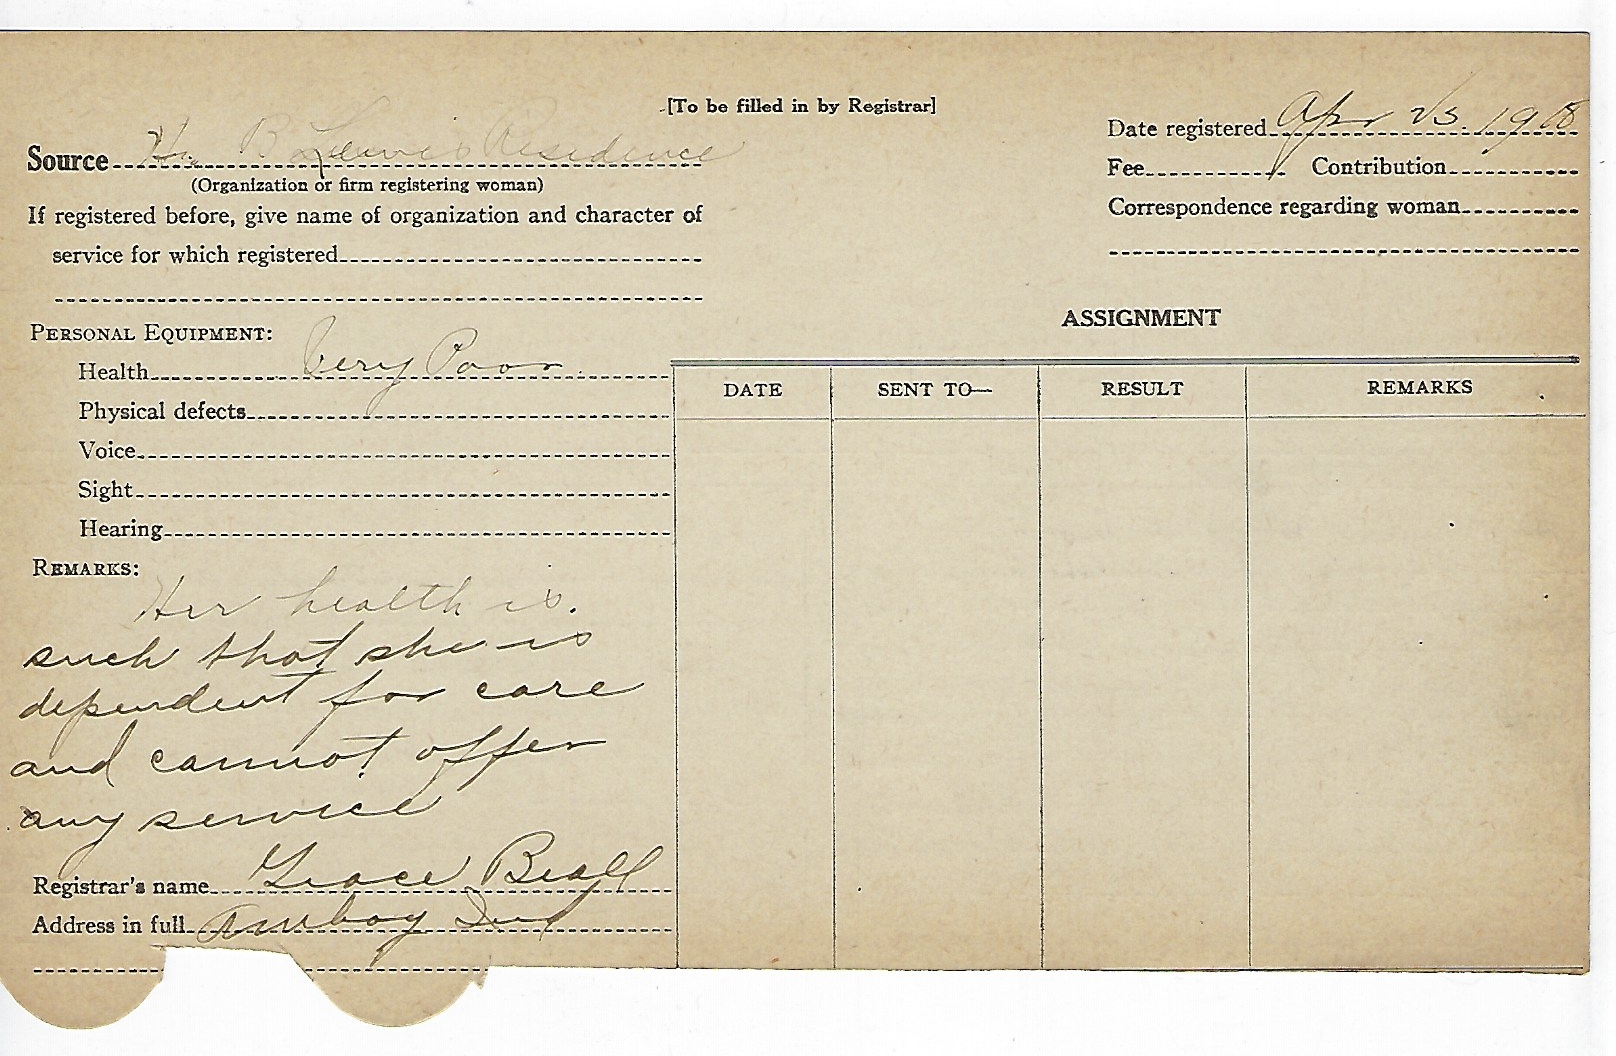 [To be filled in by Registrar]
Source B Lewis Residence
(Organization or firm registering woman)
If registered before, give name of organization and character of
service for which registered
Date registered Apr 25. 1918
Fee Contribution
Correspondence regarding woman
PERSONAL EQUIPMENT:
Health Very Poor
Physical defects
Voice
Sight
Hearing
REMARKS:
Her health is.
such that she is
dependent for care
and cannot offer
any service
Registrar's name Grace Beall
Address in full Amboy Ind
ASSIGNMENT
DATE SENT TO— RESULT REMARKS